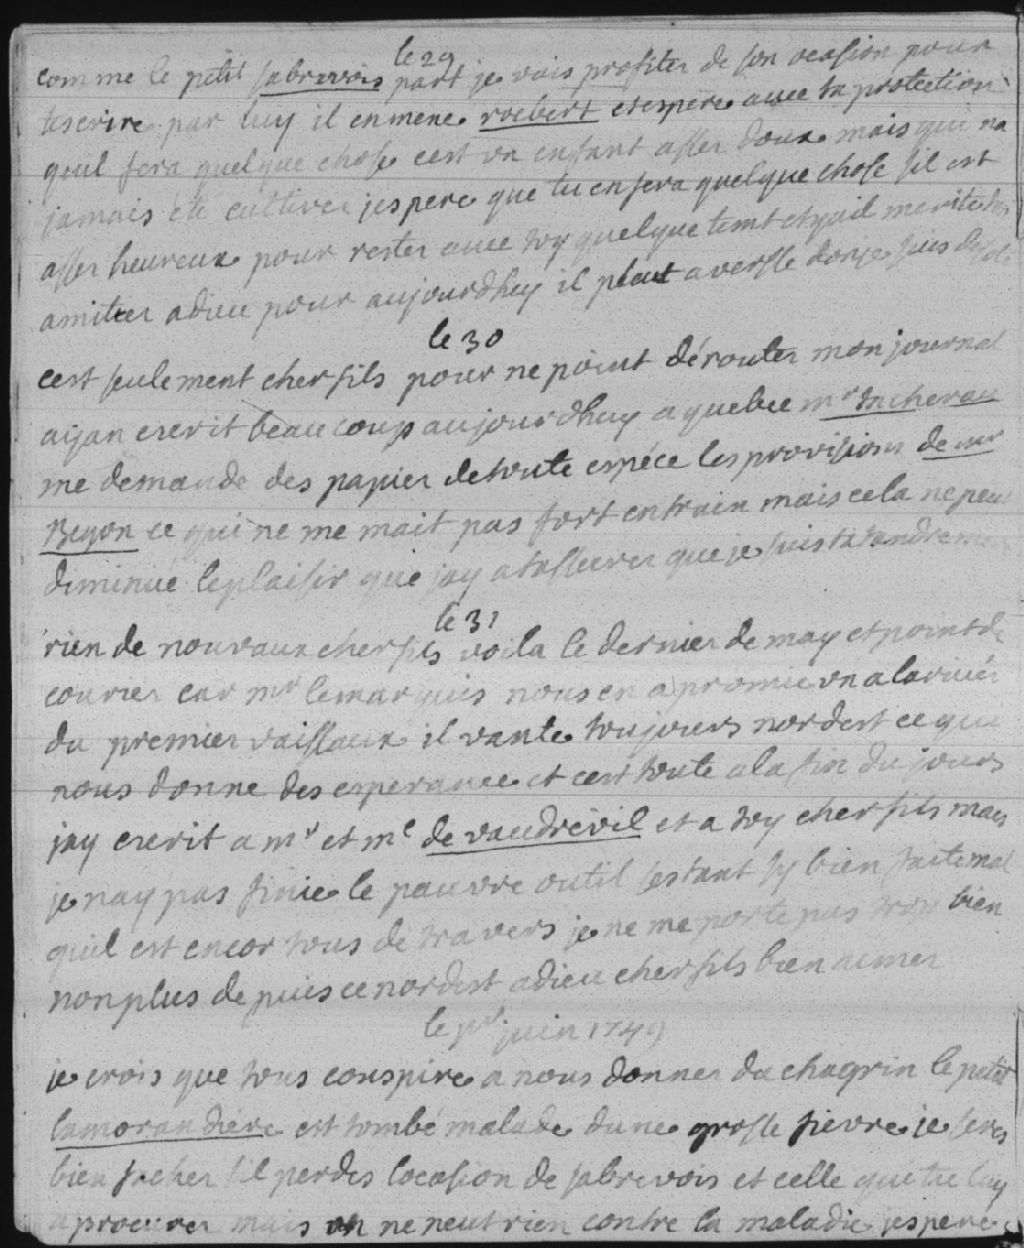 le 29
comme le petit sabrevois part je vais profiter de son ocasion pour
tescrire par luy il enmene roebert et espere avec ta protection
quil fera quelque chose cest un enfant asser doux mais qui na
jamais ete cultiver jespere que tu en fera quelque chose sil est
asser heureux pour rester avec toy quelque temt et quil merite tes
amitier adieu pour aujourdhuy il pleut a versse donje suis desolé
le 30
cest seulement cher fils pour ne point dérouter mon journal
aÿan escrit beaucoup aujourdhuy a quebec mr
me demande des papier de toute espéce les provisions de mr
Begon ce qui ne me mait pas fort en train mais cela ne peut
diminué le plaisir que jay a tasseurer que je suis ta tandre
le 31
rien de nouvaux cher fils voila le dernier de may et point de
courier car mr le marquis nous en a promie un a larivée
du premier vaissaux il vante toujours nordest ce qui
nous donne des esperance et cest toute a la fin du jours
jay escrit a mr et me de vaudrévil et a toy cher fils mais
je nay pas finie le pauvre outil sestant sy bien fait mal
quil est encor tous de travers je ne me porte pas trop bien
non plus depuis ce nordest adieu cher fils bien aimer
le pr juin 1749
je crois que tous conspire a nous donner du chagrin le petit
lamorandiere est tombé malade dune grosse fievre je serés
bien facher sil perdes locasion de sabrevois et celle que tu luy
a procurer mais on ne peut rien contre la maladie jespere